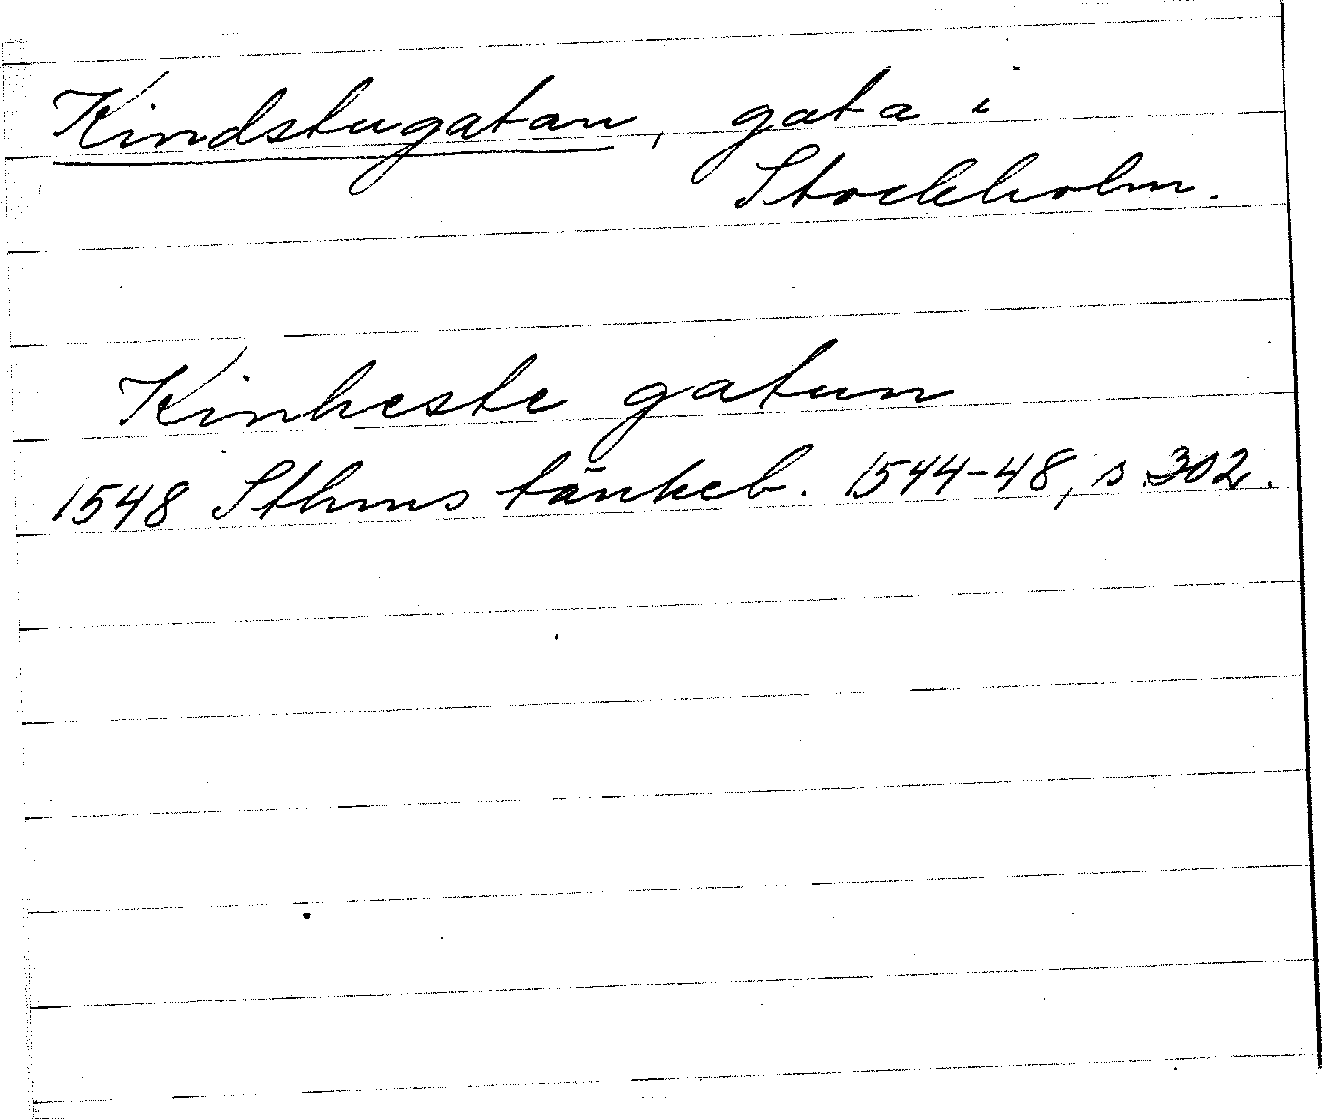 Kindstugatan, gata i
Stockholm.
Kinheste gatun
1548 Sthms tänkeb. 1544-48, s 302.